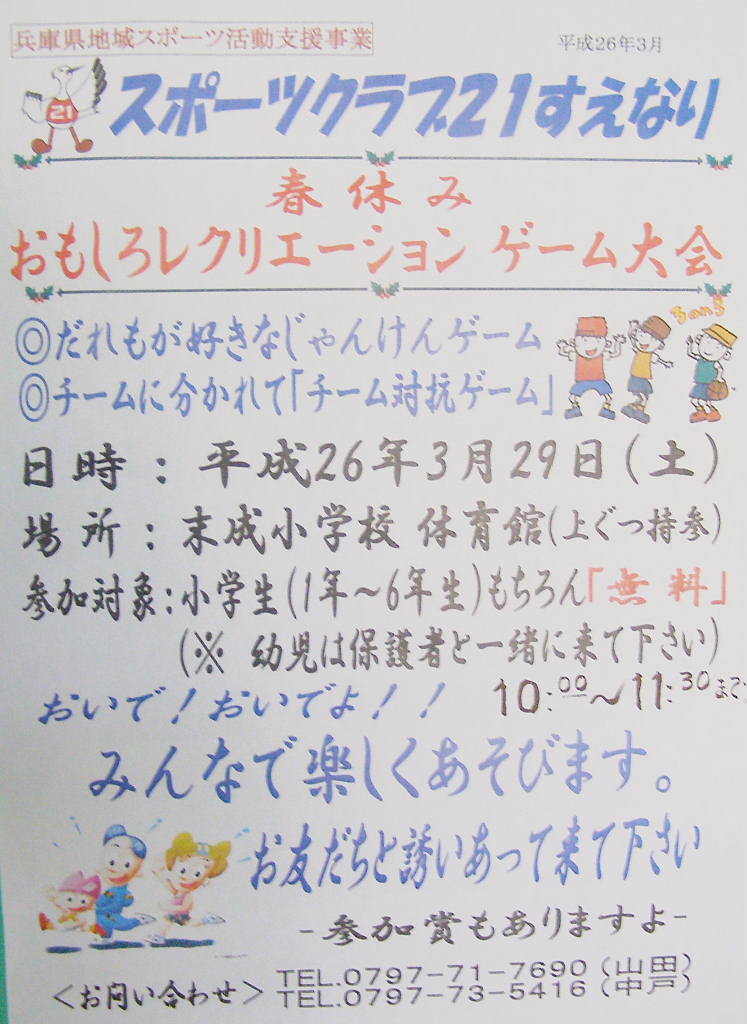 兵庫県地域スポーツ活動支援事業
平成26年3月
21
スポーツクラブ21すえなり
春休み
おもしろレクリエーション ゲーム大会
3on3
◎だれもが好きなじゃんけんゲーム
◎チームに分かれて「チーム対抗ゲーム」
日時：平成26年3月29日(土)
場所：末成小学校 体育館(上ぐつ持参)
参加対象：小学生(1年～6年生)もちろん「無料」
(※ 幼児は保護者と一緒に来て下さい)
10:00～11:30まで
おいで！おいでよ！！
みんなで楽しくあそびます。
お友だちと誘いあって来て下さい
-参加賞もありますよ-
<お問い合わせ>
TEL.0797-71-7690(山田)
TEL.0797-73-5416(中戸)